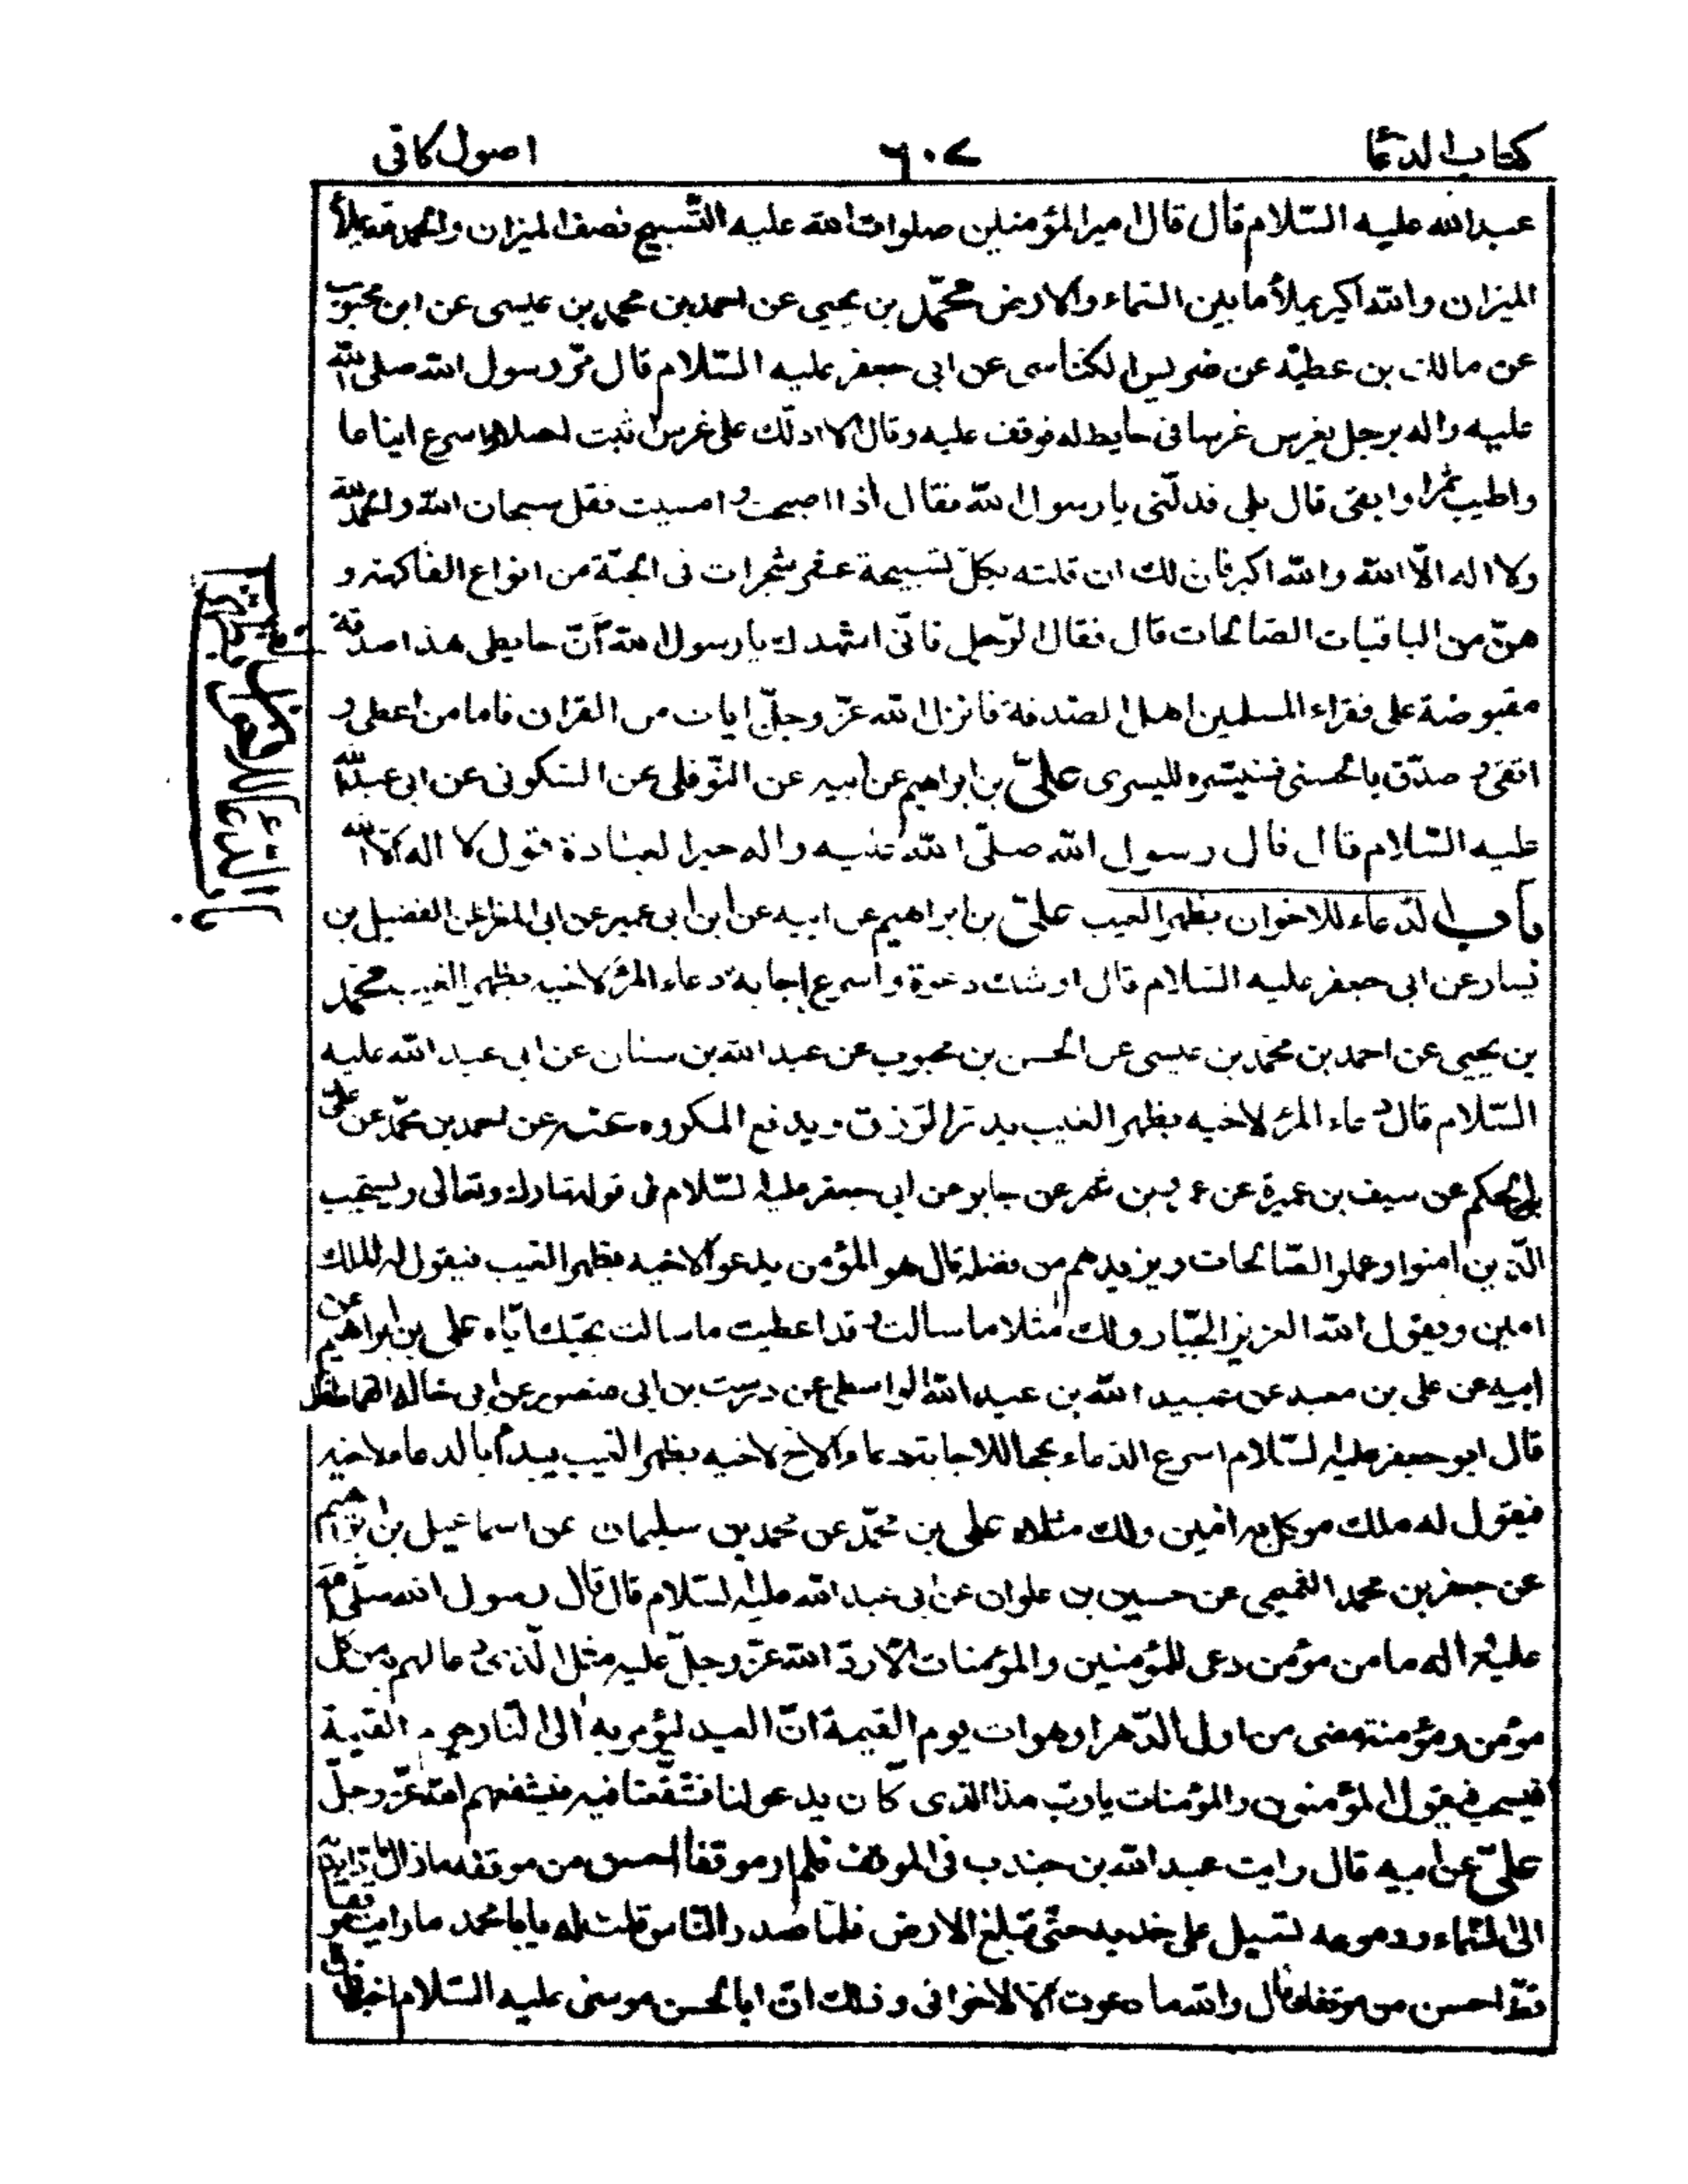 كتاب الدعا
٦٠٧
اصول كافى
عبد الله عليه السّلام قال قال امير المؤمنين صلوات الله عليه التّسبيح نصف الميزان والحمد لله يملأ
الميزان والله اكبر يملأ ما بين السّماء والارض محمّد بن يحيى عن احمد بن محمد بن عيسى عن ابن محبوب
عن مالك بن عطيّة عن ضريس الكناسى عن ابى جعفر عليه السّلام قال مرّ رسول الله صلى الله
عليه واله برجل يغرس غرسا فى حايط له فوقف عليه وقال الا ادلّك على غرس اثبت اصلا واسرع ايناعا
واطيب ثمرا وابقى قال بلى فدلّنى يا رسول الله فقال اذا اصبحت وامسيت فقل سبحان الله والحمد لله
ولا اله الّا الله والله اكبر فان لك ان قلته بكلّ تسبيحة عشر شجرات فى الجنّة من انواع الفاكهة و
هنّ من الباقيات الصّالحات قال فقال الرّجل فانّى اشهدك يا رسول الله أنّ حايطى هذا صدقة
مقبوضة على فقراء المسلمين اهل الصّدقة فانزل الله عزّ وجلّ ايات من القران فاما من اعطى و
اتقى و صدّق بالحسنى فسنيسّره لليسرى علىّ بن ابراهيم عن ابيه عن النّوفلى عن السّكونى عن ابى عبد الله
عليه السّلام قال قال رسول الله صلّى الله عليه واله خير العبادة قول لا اله الّا الله
باب الدّعاء للاخوان بظهر الغيب علىّ بن ابراهيم عن ابيه عن ابن ابى عمير عن ابى المغرا عن الفضيل بن
يسار عن ابى جعفر عليه السّلام قال اوشك دعوة واسرع اجابة دعاء المرء لاخيه بظهر الغيب محمّد
بن يحيى عن احمد بن محمّد بن عيسى عن الحسن بن محبوب عن عبد الله بن سنان عن ابى عبد الله عليه
السّلام قال دعاء المرء لاخيه بظهر الغيب يدرّ الرّزق ويدفع المكروه عنه عن احمد بن محمّد عن على
بن الحكم عن سيف بن عميرة عن عمرو بن شمر عن جابر عن ابى جعفر عليه السّلام فى قوله تبارك وتعالى ويستجيب
الّذين امنوا وعملوا الصّالحات ويزيدهم من فضله قال هو المؤمن يدعو لاخيه بظهر الغيب فيقول له الملك
امين ويقول الله العزيز الجبّار ولك مثلا ما سالت وقد اعطيت ما سالت بحبّك ايّاه على بن ابراهيم عن
ابيه عن على بن معبد عن عبيد الله بن عبد الله الواسطى عن درست بن ابى منصور عن ابى خالد القماط قال
قال ابو جعفر عليه السّلام اسرع الدّعاء نجحا للاجابة دعاء الاخ لاخيه بظهر الغيب يبدأ بالدعاء لاخيه
فيقول له ملك موكل به امين ولك مثلاه على بن محمّد عن محمد بن سليمان عن اسماعيل بن ابراهيم
عن جعفر بن محمد التميمى عن حسين بن علوان عن ابى عبد الله عليه السّلام قال قال رسول الله صلّى الله
عليه واله ما من مؤمن دعى للمؤمنين والمؤمنات الّا ردّ الله عزّ وجلّ عليه مثل الّذى دعا لهم به من كل
مؤمن ومؤمنة مضى من اول الدّهر او هو ات يوم القيمة انّ العبد ليؤمر به الى النّار يوم القيمة
فيسحب فيقول المؤمنون والمؤمنات يا ربّ هذا الذى كان يدعو لنا فشفّعنا فيه فيشفعهم الله عزّ وجلّ
علىّ عن ابيه قال رايت عبد الله بن جندب فى الموقف فلم ار موقفا احسن من موقفه ما زال مادّا يديه
الى السّماء ودموعه تسيل على خدّيه حتّى تبلغ الارض فلمّا صدر النّاس قلت له يا با محمد ما رايت موقفا
قطّ احسن من موقفك قال والله ما دعوت الّا لاخوانى وذلك انّ ابا الحسن موسى عليه السّلام اخبرنى
باب الدّعاء للاخوان بظهر الغيب